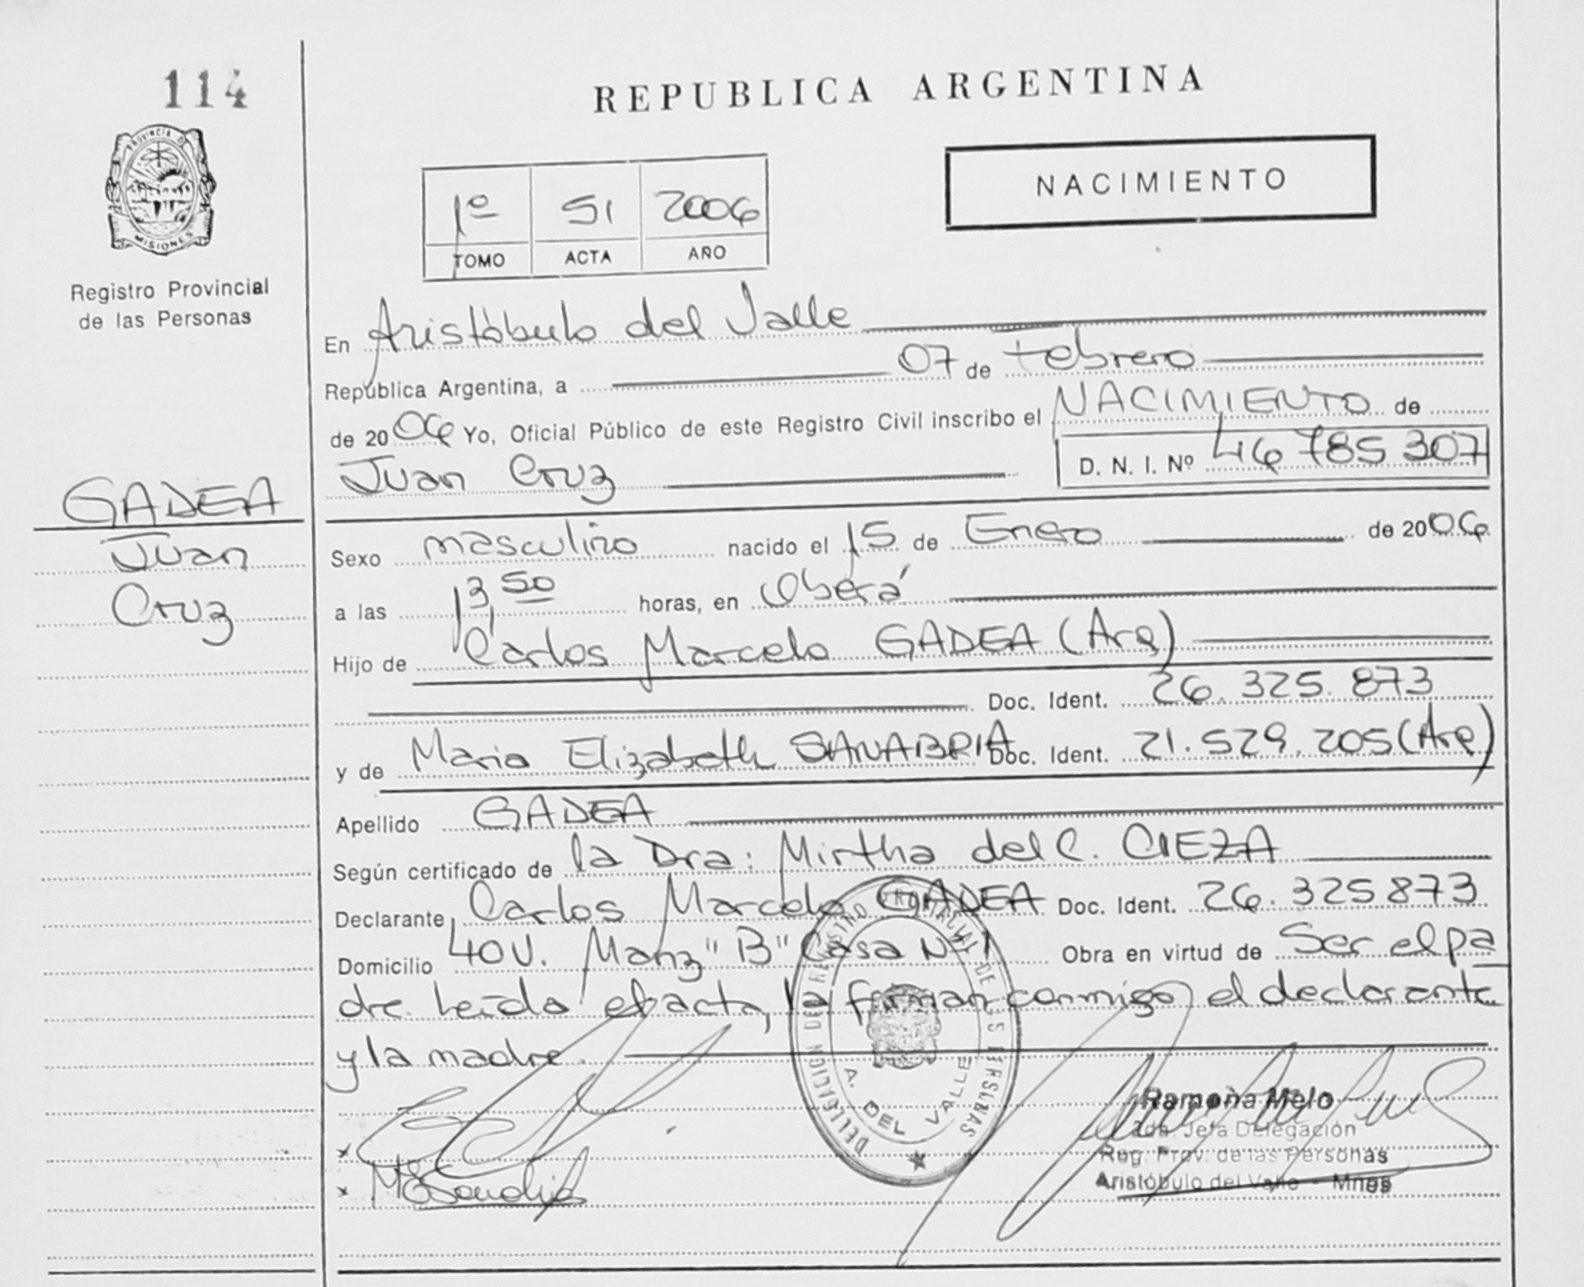 114
REPUBLICA ARGENTINA
PROVINCIA D
MISIONES
Registro Provincial
de las Personas
1º 51 2006
TOMO ACTA AÑO
NACIMIENTO
En Aristóbulo del Valle
República Argentina, a 07 de Febrero
de 2006 Yo, Oficial Público de este Registro Civil inscribo el NACIMIENTO de
Juan Cruz D. N. I. Nº 46 785 307
GADEA
Juan
Cruz
Sexo masculino nacido el 15 de Enero de 2006
a las 13,50 horas, en Oberá
Hijo de Carlos Marcelo GADEA (Arg)
Doc. Ident. 26.325.873
y de Maria Elizabeth SANABRIA Doc. Ident. 21.529.205 (Arg)
Apellido GADEA
Según certificado de la Dra: Mirtha del C. CIEZA
Declarante Carlos Marcelo GADEA Doc. Ident. 26.325873
Domicilio 40V. Manz "B" Casa Nº 1 Obra en virtud de Ser el pa
dre. Leída el acta, la firman conmigo, el declarante
y la madre.
DELEGACION DEL REGISTRO PROVINCIAL DE LAS PERSONAS
A. DEL VALLE
Ramona Melo
Jefa Delegación
Reg. Prov. de las Personas
Aristóbulo del Valle - Mnes